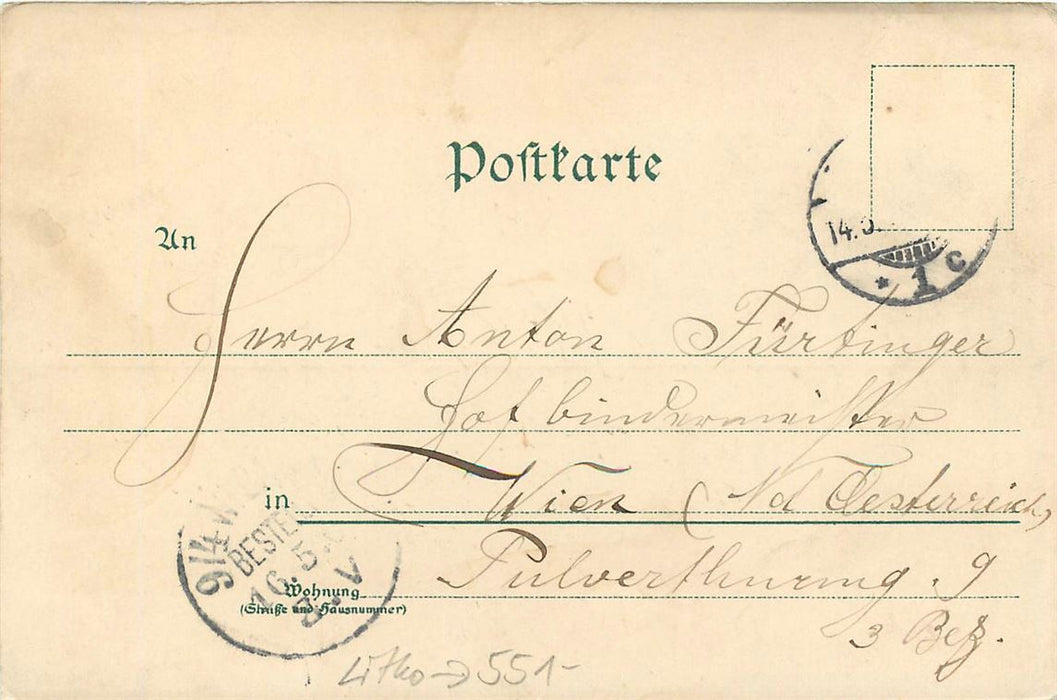 Postkarte
An
14.5.
* 1 c
Herrn Anton Fürtinger
Hofbindermeister
in Wien (Nd Oesterreich,
9/4 W
BESTE
16.5
V
Wohnung
(Straße und Hausnummer)
9
3 Bez.
Litho → 551-